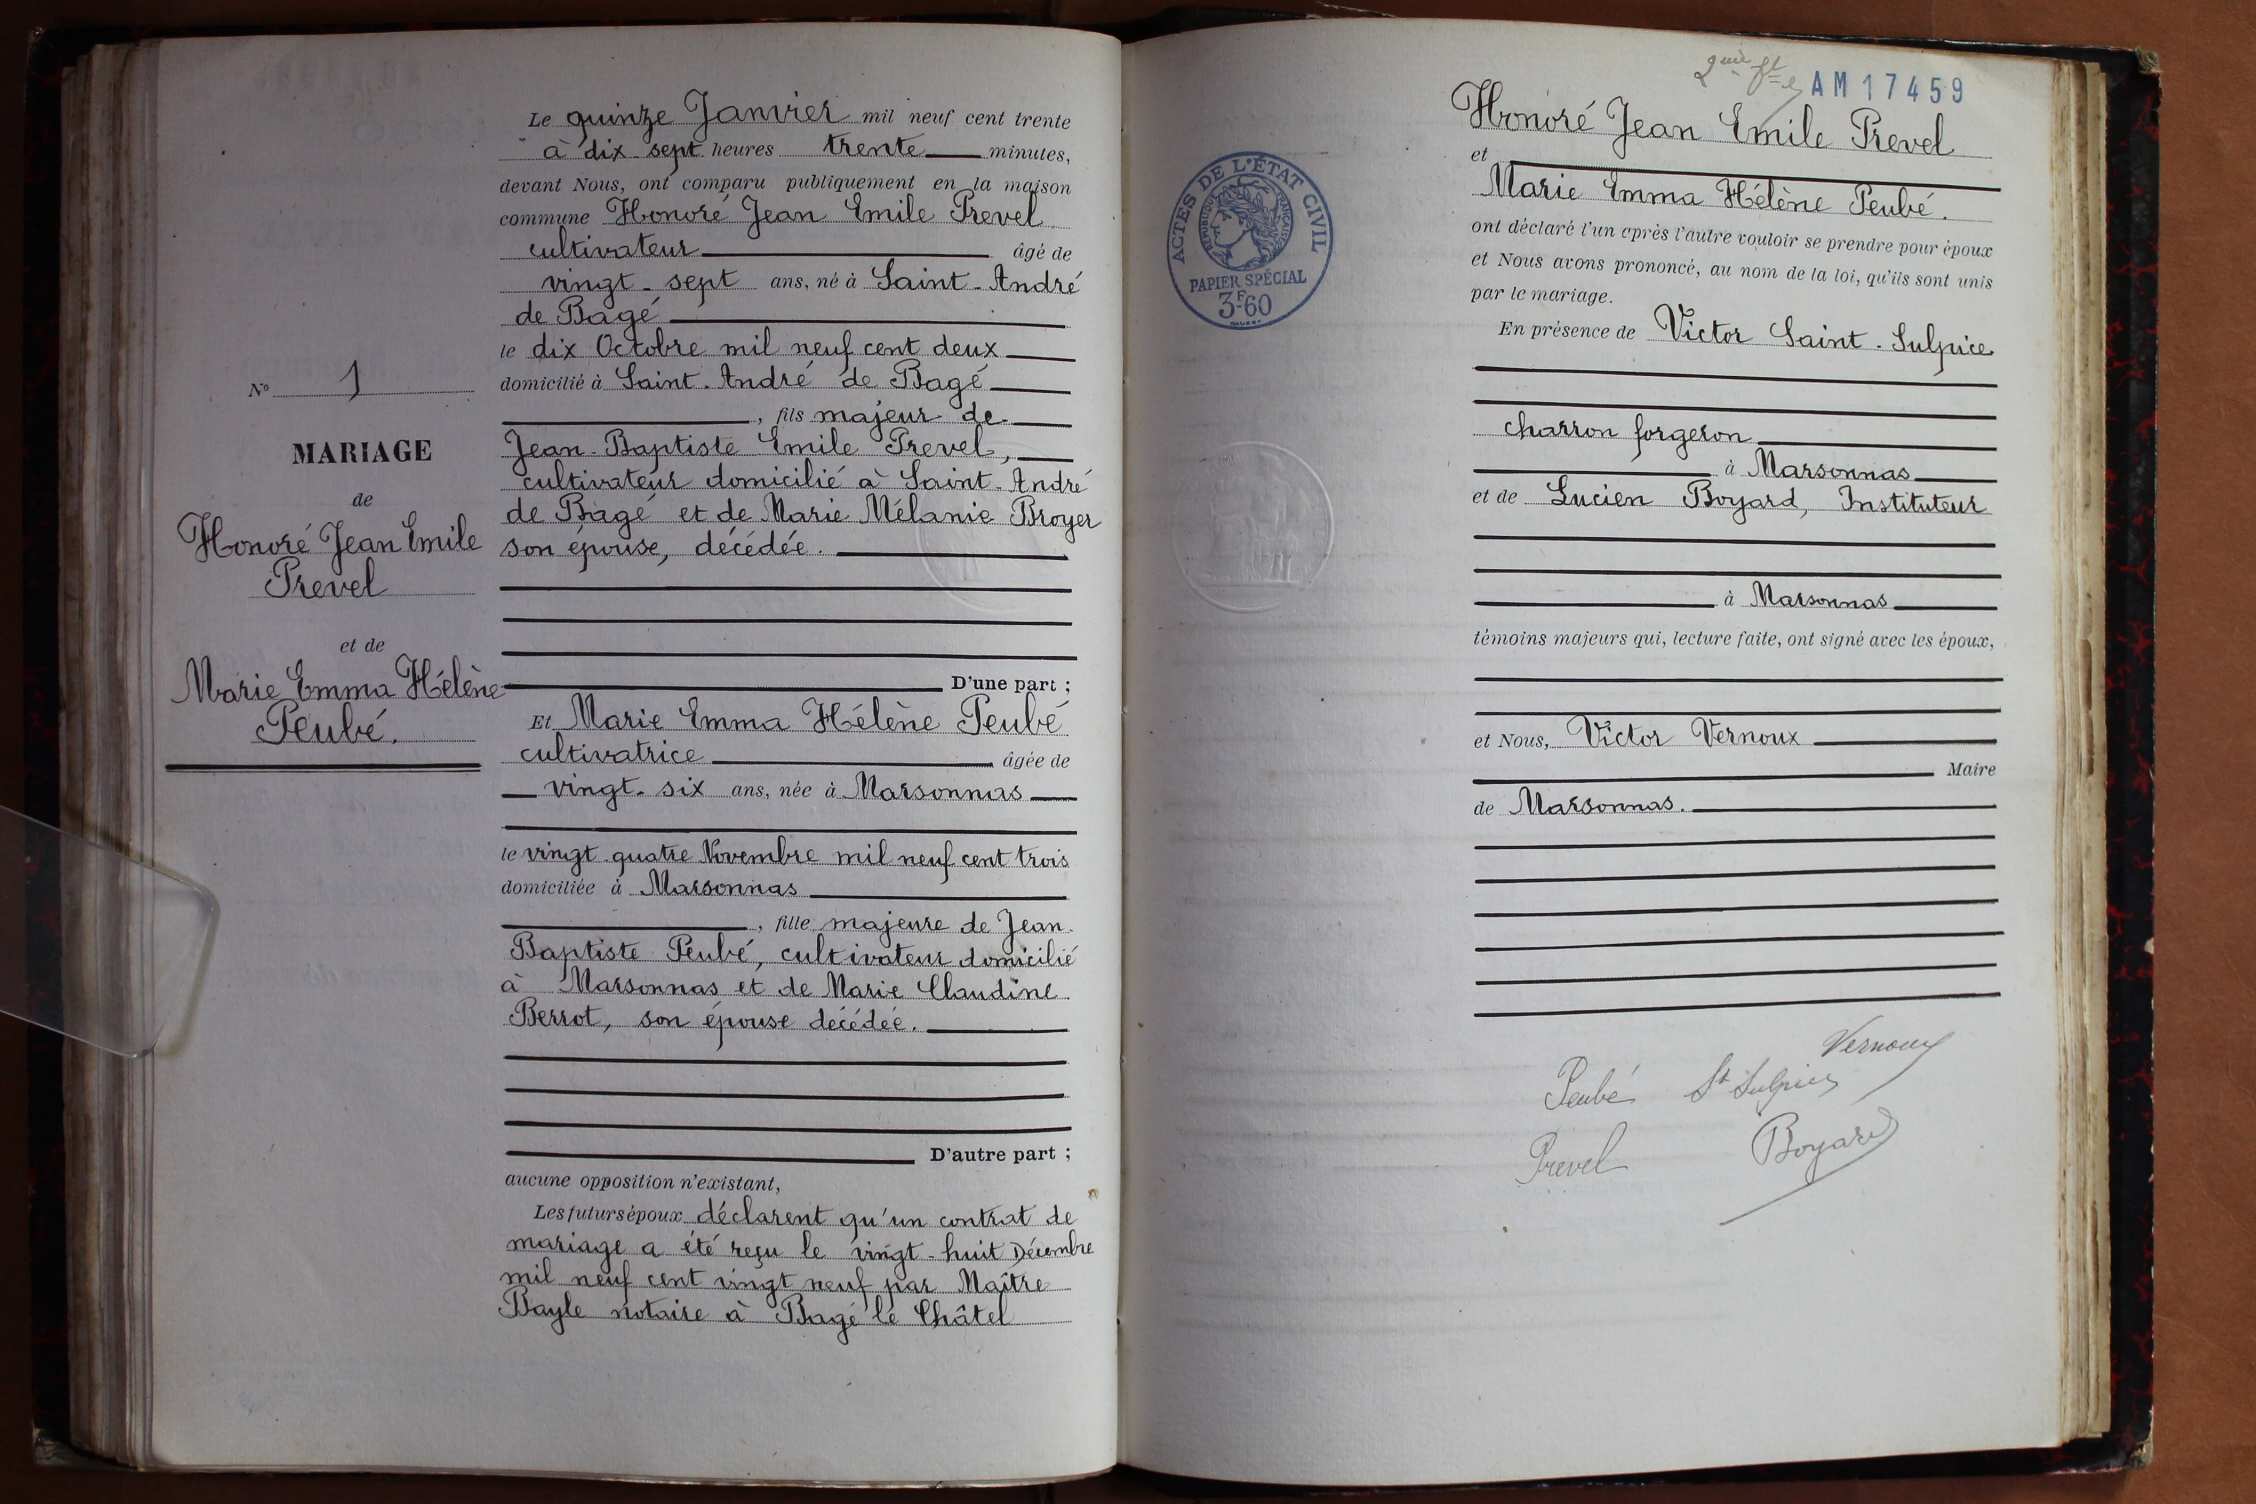 Le quinze Janvier mil neuf cent trente
à dix sept heures trente minutes,
devant Nous, ont comparu publiquement en la maison
commune Honoré Jean Emile Prevel
cultivateur âgé de
vingt-sept ans, né à Saint-André
de Bagé
le dix Octobre mil neuf cent deux
domicilié à Saint-André de Bagé
, fils majeur de
Jean-Baptiste Emile Prevel,
cultivateur domicilié à Saint-André
de Bagé et de Marie Mélanie Broyer
son épouse, décédée.
D'une part ;
Et Marie Emma Hélène Peubé
cultivatrice âgée de
vingt-six ans, née à Marsonnas
le vingt-quatre Novembre mil neuf cent trois
domiciliée à Marsonnas
, fille majeure de Jean
Baptiste Peubé, cultivateur domicilié
à Marsonnas et de Marie Claudine
Berrot, son épouse décédée.
D'autre part ;
aucune opposition n'existant,
Les futurs époux déclarent qu'un contrat de
mariage a été reçu le vingt-huit Décembre
mil neuf cent vingt neuf par Maître
Bayle notaire à Bagé le Châtel
N° 1
MARIAGE
de
Honoré Jean Emile
Prevel
et de
Marie Emma Hélène
Peubé.
AM17459
Honoré Jean Emile Prevel
et
Marie Emma Hélène Peubé.
ont déclaré l'un après l'autre vouloir se prendre pour époux
et Nous avons prononcé, au nom de la loi, qu'ils sont unis
par le mariage.
En présence de Victor Saint-Sulpice
charron forgeron
à Marsonnas
et de Lucien Boyard, Instituteur
à Marsonnas
témoins majeurs qui, lecture faite, ont signé avec les époux,
et Nous, Victor Vernoux
Maire
de Marsonnas.
Vernoux
Peubé St Sulpice
Prevel Boyard
ACTES DE L'ÉTAT CIVIL
RÉPUBLIQUE FRANÇAISE
PAPIER SPÉCIAL
3F60